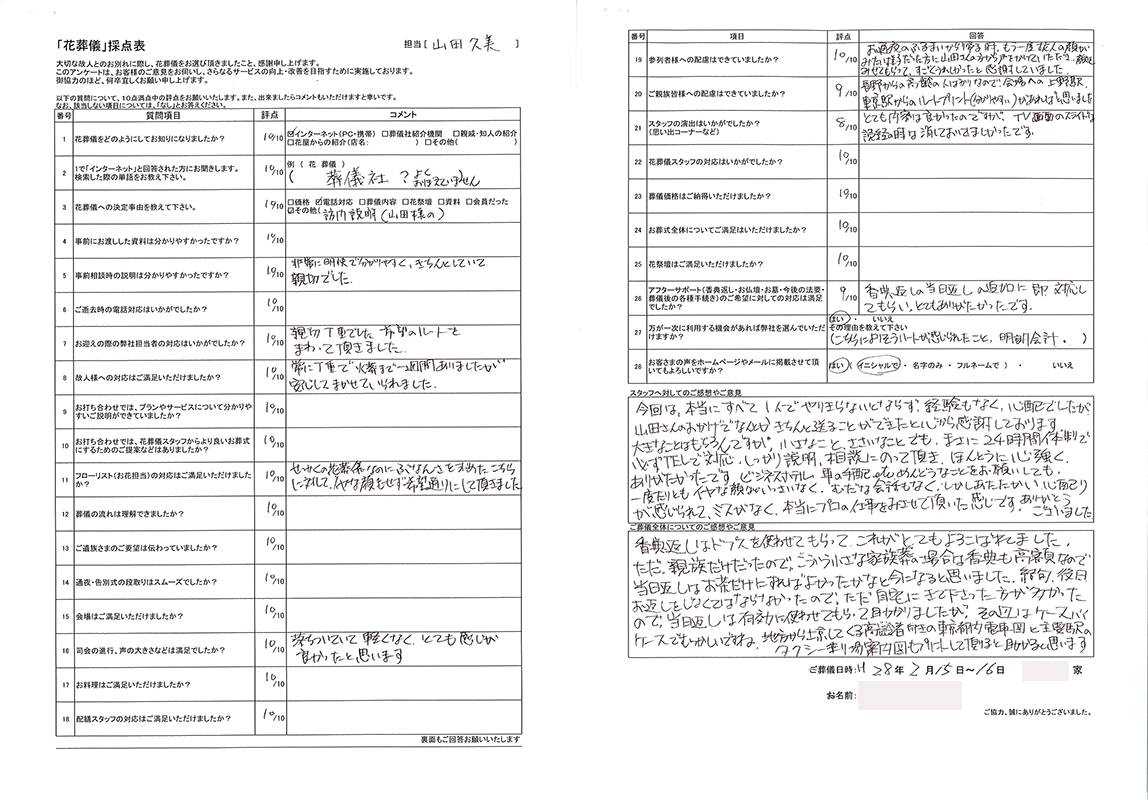 「花葬儀」採点表
担当[ 山田 久美 ]
大切な故人とのお別れに際し、花葬儀をお選び頂きましたこと、感謝申し上げます。
このアンケートは、お客様のご意見をお伺いし、さらなるサービスの向上・改善を目指すために実施しております。
御協力のほど、何卒宜しくお願い申し上げます。
以下の質問について、10点満点中の評点をお願いいたします。また、出来ましたらコメントもいただけますと幸いです。
なお、該当しない項目については、「なし」とお答えください。
番号 質問項目 評点 コメント
1 花葬儀をどのようにしてお知りになりましたか? 10/10 ☑インターネット(PC・携帯) □葬儀社紹介機関 □親戚・知人の紹介
□花屋からの紹介(店名: ) □その他( )
2 1で「インターネット」と回答された方にお聞きします。
検索した際の単語をお教え下さい。 10/10 例 ( 花 葬儀 )
( 葬儀社 ? よく
おぼえていません
3 花葬儀への決定事由を教えて下さい。 10/10 □価格 ☑電話対応 □葬儀内容 □花祭壇 □資料 □会員だった
☑その他( 訪問説明 (山田様の)
4 事前にお渡しした資料は分かりやすかったですか? 10/10
5 事前相談時の説明は分かりやすかったですか? 10/10 非常に明快で分かりやすく、きちんとしていて
親切でした。
6 ご逝去時の電話対応はいかがでしたか? 10/10
7 お迎えの際の弊社担当者の対応はいかがでしたか? 10/10 親切丁重でした 希望のルートを
まわって頂きました。
8 故人様への対応はご満足いただけましたか? 10/10 常に丁重で火葬まで一週間ありましたが
安心してまかせていられました。
9 お打ち合わせでは、プランやサービスについて分かりや
すいご説明ができていましたか? 10/10
10 お打ち合わせでは、花葬儀スタッフからより良いお葬式
にするためのご提案などはありましたか? 10/10
11 フローリスト(お花担当)の対応はご満足いただけました
か? 10/10 せっかくの花葬儀なのに こちら
に対して、イヤな顔をせず希望通りにして頂きました
12 葬儀の流れは理解できましたか? 10/10
13 ご遺族さまのご要望は伝わっていましたか? 10/10
14 通夜・告別式の段取りはスムーズでしたか? 10/10
15 会場はご満足いただけましたか? 10/10
16 司会の進行、声の大きさなどは満足でしたか? 10/10 落ちついていて 軽くなく、とても感じが
良かったと思います
17 お料理はご満足いただけましたか? 10/10
18 配膳スタッフの対応はご満足いただけましたか? 10/10
裏面もご回答お願いいたします
番号 項目 評点 回答
19 参列者様への配慮はできていましたか? 10/10 お通夜のふるまいから帰る時、もう一度故人の顔が
みたい 方に山田さんの方から声をかけていただき、
みせてもらって、すごくうれしかったと感謝していました。
20 ご親族皆様への配慮はできていましたか? 9/10 長野からの高齢の人ばかりなので、会場への上野駅、
東京駅からのルートプリント(分かりやすい)があればと思いました
21 スタッフの演出はいかがでしたか?
(思い出コーナーなど) 8/10 とても内容は良かったのですが、TV画面のスライドは
読経の時は消しておいてほしかったです。
22 花葬儀スタッフの対応はいかがでしたか? 10/10
23 葬儀価格はご納得いただけましたか? 10/10
24 お葬式全体についてご満足はいただけましたか? 10/10
25 花祭壇はご満足いただけましたか? 10/10
26 アフターサポート(香典返し・お仏壇・お墓・今後の法要・
葬儀後の各種手続き)のご希望に対しての対応は満足
でしたか? 9/10 香典返しの当日返しの追加に即対応し
てもらい、とてもありがたかったです。
27 万が一次に利用する機会があれば弊社を選んでいただ
けますか? はい ・ いいえ
その理由を教えて下さい
(こちらによりそうハートが感じられたこと、明朗会計。 )
28 お客さまの声をホームページやメールに掲載させて頂
いてもよろしいですか? はい ( イニシャルで ・ 名字のみ ・ フルネームで ) ・ いいえ
スタッフへ対してのご感想やご意見
今回は、本当にすべて1人でやりきらないとならず、経験もなく、心配でしたが、
山田さんのおかげでなんとか きちんと送ることができたと心から感謝しております。
大きなことはもちろんですが、小さなこと、ささいなことでも、まさに24時間体制で
必ずTELで対応、しっかり説明、相談にのって頂き、ほんとうに心強く、
ありがたかったです ビジネスホテル、車の手配 etc めんどうなことをお願いしても、
一度たりともイヤな顔をいっさいなく、むだな会話もなく、しかしあたたかい心配り
が感じられて、ミスがなく、本当にプロの仕事をみさせて頂いた感じです。ありがとう
ございました
ご葬儀全体についてのご感想やご意見
香典返しはドゥブスを使わせてもらって、これがとてもよろこばれてました。
ただ、親族だけだったので、こういう小さな家族葬の場合は香典も高額なので
当日返しはお茶だけにすればよかったかなと今になると思いました。結局、後日
お返しをしなくてはならなかったので、ただ自宅にきて下さった方が多かった
ので、当日返しは有効に使わせてもらって助かりましたが、その辺はケースバイ
ケースでむつかしいですね。地方から上京してくる高齢者向きの東京都内電車図と主要駅の
タクシー乗り場案内図もプリントして頂ほと助かると思います
ご葬儀日時: H 28年 2月 15日~16日 家
お名前:
ご協力、誠にありがとうございました。